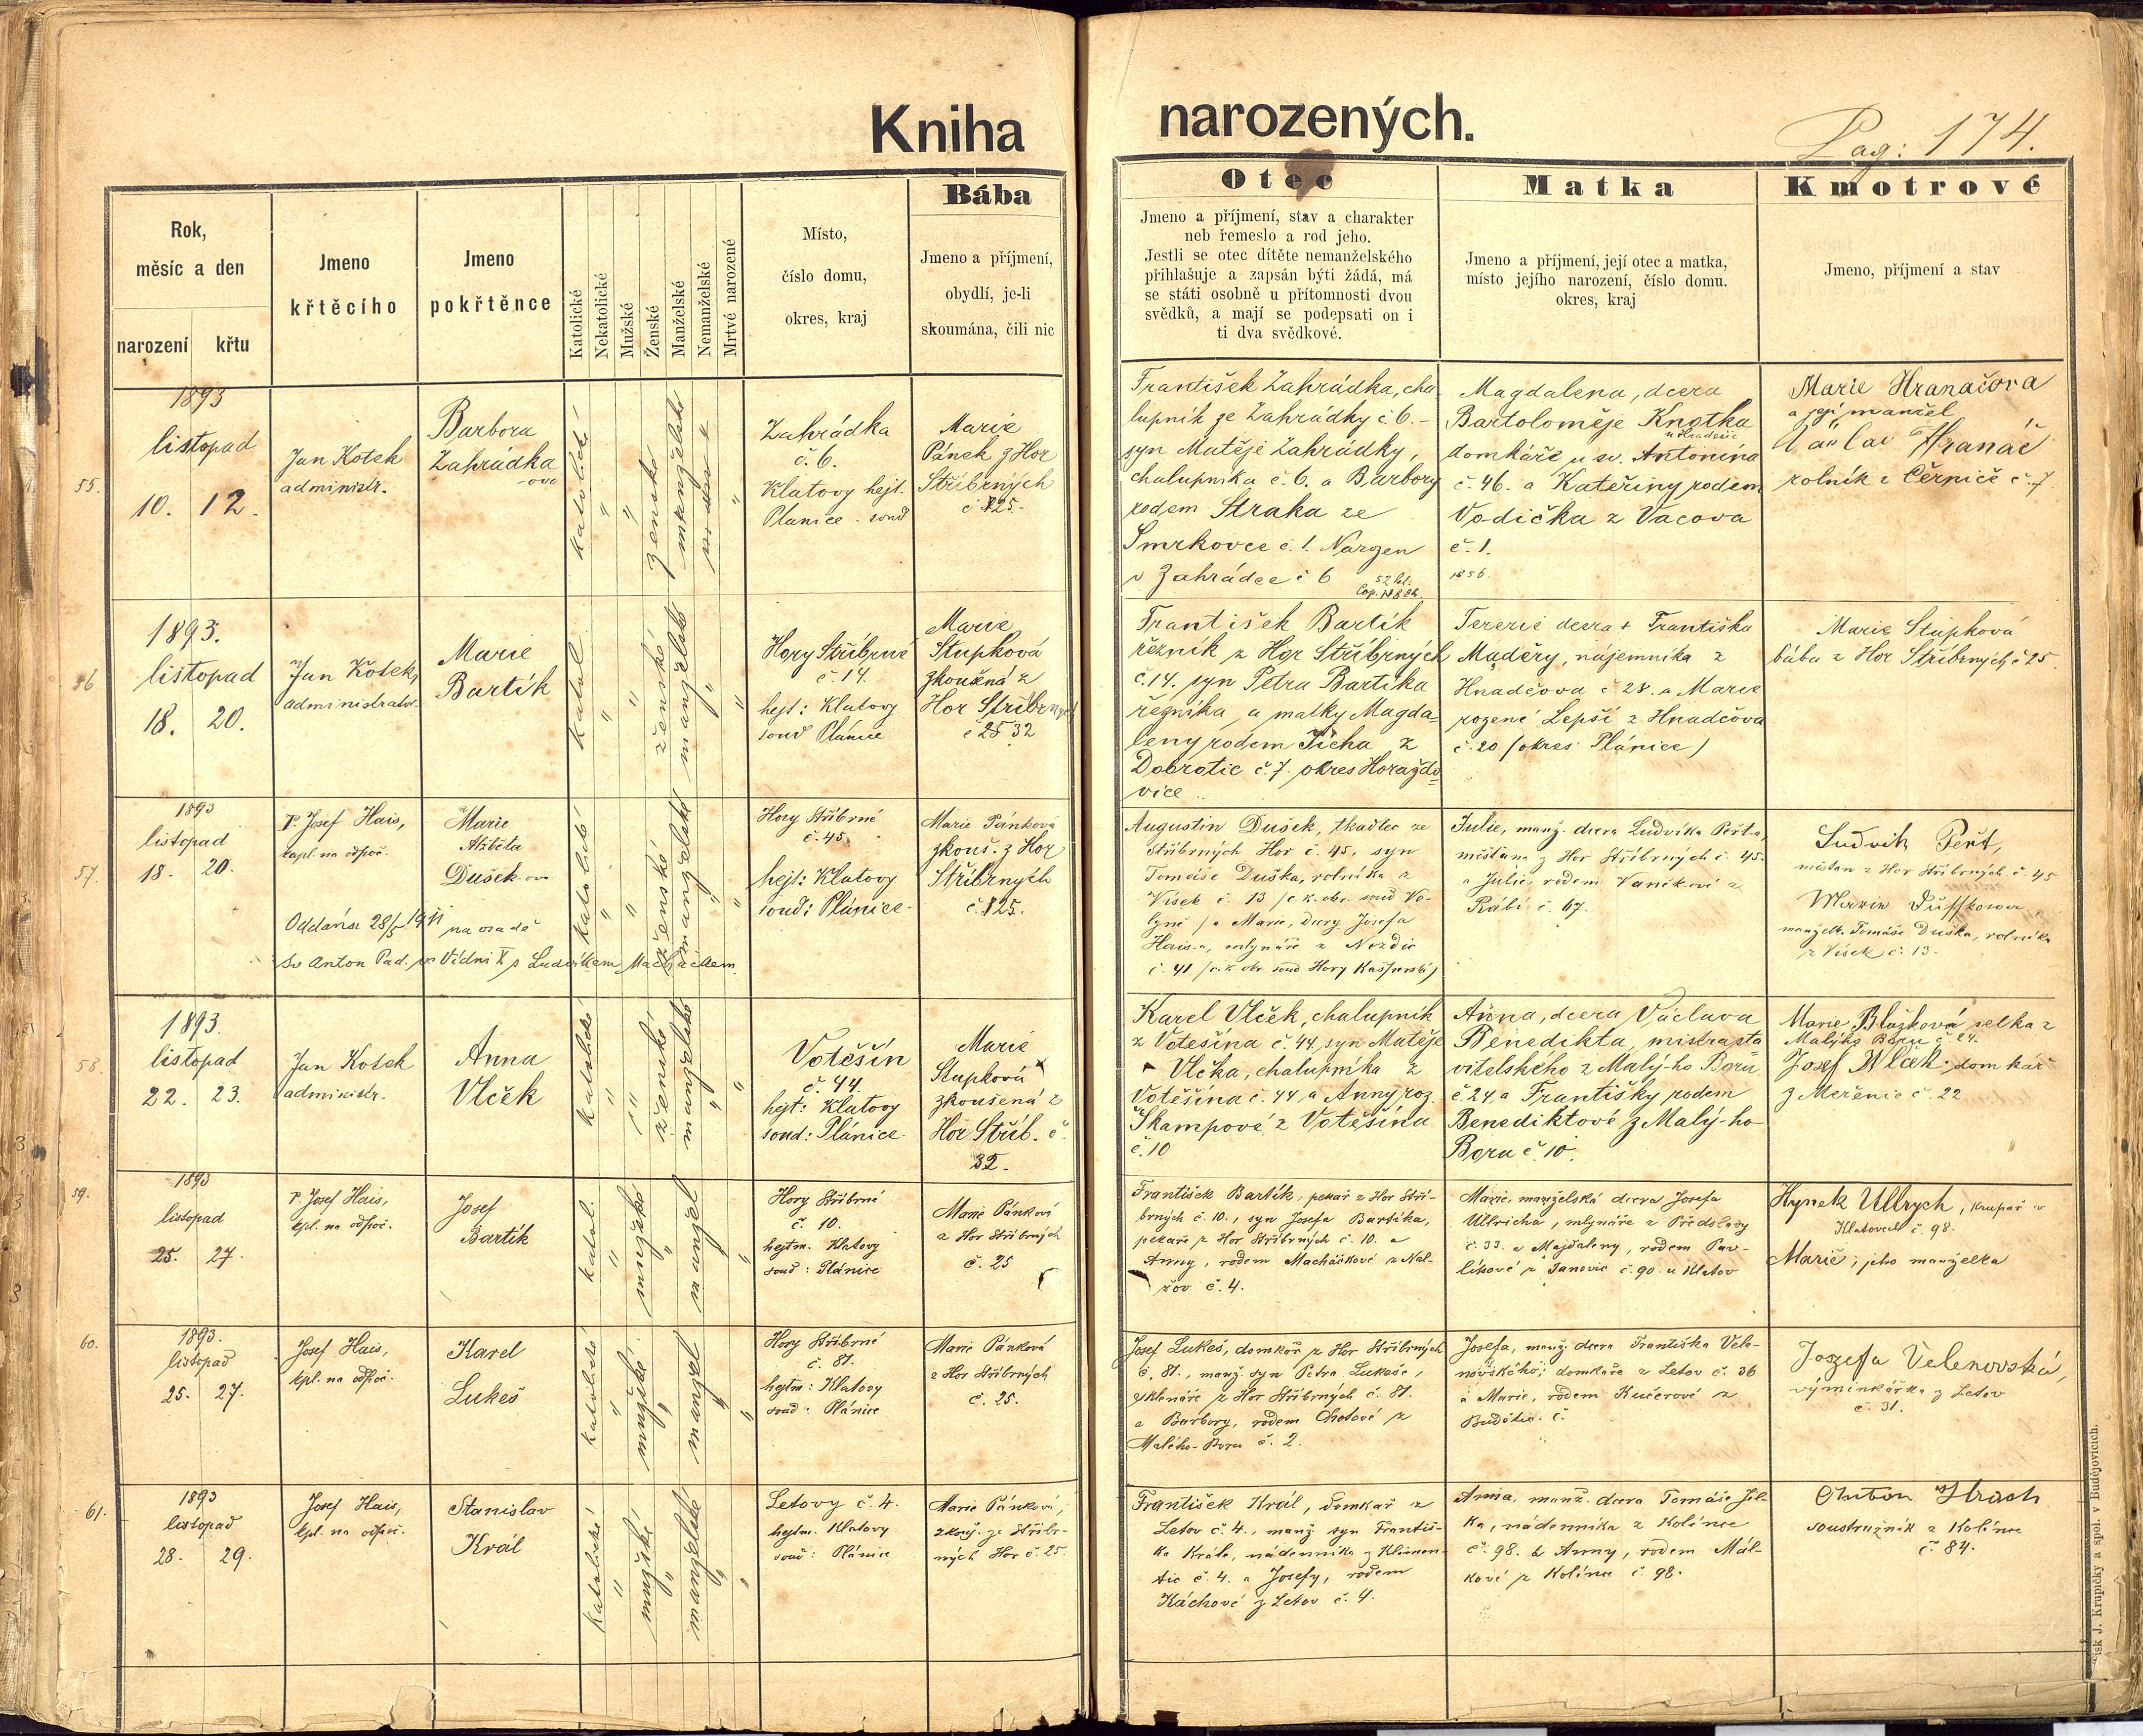 Kniha narozených.
Pag: 174.
Rok,
měsíc a den
narození
křtu
Jmeno
křtěcího
Jmeno
pokřtěnce
Katolické
Nekatolické
Mužské
Ženské
Manželské
Nemanželské
Mrtvé narozené
Místo,
číslo domu,
okres, kraj
Bába
Jmeno a příjmení,
obydlí, je-li
skoumána, čili nic
Otec
Jmeno a příjmení, stav a charakter
neb řemeslo a rod jeho.
Jestli se otec dítěte nemanželského
přihlašuje a zapsán býti žádá, má
se státi osobně u přítomnosti dvou
svědků, a mají se podepsati on i
ti dva svědkové.
Matka
Jmeno a příjmení, její otec a matka,
místo jejího narození, číslo domu.
okres, kraj
Kmotrové
Jmeno, příjmení a stav
55.
1893
listopad
10. 12.
Jan Kotek
administr.
Barbora
Zahrádka
-ova
katolické
ženské
manželské
Zahrádka
č. 6.
Klatovy hejt.
Planice - soud
Marie
Pánek z Hor
Stříbrných
č 125.
František Zahrádka, cha
lupník ze Zahrádky č 6. -
syn Matěje Zahrádky,
chalupníka č. 6. a Barbory
rodem Straka ze
Smrkovce č. 1. Narozen
v Zahrádce č 6
Magdalena, dcera
Bartoloměje Knotka
domkáře u sv. Antonína
č. 46. a Kateřiny rodem
Vodička z Vacova
č. 1.
1856.
Marie Hranáčova
a její manžel
Václav Hranáč
rolník z Černice č. 7
56
1893.
listopad
18. 20.
Jan Kotek,
administrator.
Marie
Bartík
katol.
ženské
manželské
Hory Stříbrné
č. 14.
hejt: Klatovy
soud Plánice
Marie
Stupková
zkoušená z
Hor Stříbrných
č 25 32
František Bartík
řezník z Hor Stříbrných
č. 14. syn Petra Bartíka
řezníka a matky Magda=
leny rodem Jícha z
Dobrotic č. 7. okres Horažďo=
vice.
Terezie dcera + Františka
Maděry, nájemníka z
Hnačova č 28. a Marie
rozené Lepší z Hnačova
č. 20 (okres Plánice)
Marie Stupková
bába z Hor Stříbrných č 25.
57.
1893
listopad
18. 20.
P. Josef Hais,
kapl. na odpoč.
Marie
Alžběta
Dušek-ova
Oddána 28/5 1911 na osadě
Sv Anton Pad. ve Vídni X s Ludvíkem Macháčkem
katolické
ženské
manželské
Hory Stříbrné
č. 45.
hejt: Klatovy
soud: Plánice
Marie Pánková
zkouš. z Hor
Stříbrných
č. 125.
Augustin Dušek, tkadlec ze
Stříbrných Hor č. 45, syn
Tomáše Duška, rolníka z
Vísek č. 13 (c. k. okr. soud Vo-
lyně) a Marie, dcery Josefa
Hais-a, mlynáře z Nezdic
č. 41 (c. k. okr soud Hory Kašperské)
Julie, manž. dcera Ludvíka Pešta,
měšťana z Hor Stříbrných č. 45.
a Julie, rodem Vaníkové z
Rábí č. 67.
Ludvik Pešt,
měšťan z Hor Stříbrných č. 45
Marie Duškova,
manželka Tomáše Duška, rolníka
z Vísek č. 13.
58.
1893.
listopad
22. 23.
Jan Kotek
administr.
Anna
Vlček
katolické
ženské
manželské
Votěšín
č. 44.
hejt: Klatovy
soud: Plánice
Marie
Stupková
zkoušená z
Hor Stříb. č.
32.
Karel Vlček, chalupník
z Votěšína č. 44, syn Matěje
Vlčka, chalupníka z
Votěšína č. 44 a Anny roz.
Škampové z Votěšína
č. 10
Anna, dcera Václava
Benedikta, mistra sta
vitelského z Malýho Boru
č 24. a Františky rodem
Benediktové z Malýho
Boru č. 10.
Marie Blažková selka z
Malýho Boru č 24.
Josef Wlček domkář
z Meřenic č. 22
59.
1893
listopad
25. 27.
P. Josef Hais,
kpl. na odpoč.
Josef
Bartík
katol.
mužské
manžel
Hory Stříbrné
č. 10.
hejtm. Klatovy
soud: Plánice
Marie Pánková
z Hor Stříbrných
č. 25
František Bartík, pekař z Hor Stří-
brných č. 10., syn Josefa Bartíka,
pekaře z Hor Stříbrných č. 10. a
Anny, rodem Macháčkové z Nal-
žov č. 4.
Marie, manželská dcera Josefa
Ullricha, mlynáře z Předslavy
č. 33. a Majdaleny, rodem Pav-
líkové z Janovic č. 90. u Klatov
Hynek Ullrych, krupař v
Klatovech č. 98.
Marie, jeho manželka
60.
1893.
listopad
25. 27.
Josef Hais,
kpl. na odpoč.
Karel
Lukeš
katolické
mužské
manžel
Hory Stříbrné
č. 81.
hejtm: Klatovy
soud: Plánice
Marie Pánková
z Hor Stříbrných
č. 25.
Josef Lukeš, domkář z Hor Stříbrných
č. 81., manž. syn Petra Lukeše,
sklenáře z Hor Stříbrných č. 81.
a Barbory, rodem Chotové z
Malého-Boru č. 2.
Josefa, manž. dcera Františka Vele-
novského, domkáře z Letov č. 36
a Marie, rodem Kučerové z
Budětic. č.
Jozefa Velenovská,
výminkářka z Letov
č. 31.
61.
1893
listopad
28. 29.
Josef Hais,
kpl. na odpoč.
Stanislav
Král
katolické
mužské
manželské
Letovy č. 4.
hejtm. Klatovy
soud: Plánice
Marie Pánková,
zkouš. ze Stříbr-
ných Hor č. 25.
František Král, domkář z
Letov č. 4., manž syn Františ-
ka Krále, nádenníka z Klimen-
tic č. 4. a Josefy, rodem
Káchové z Letov č. 4.
Anna, manž. dcera Tomáše Jíl-
ka, nádenníka z Kolince
č. 98. a Anny, rodem Mál-
kové z Kolince č. 98.
Anton Strach
soustružník z Kolince
č. 84.
Tisk J. Krupičky a spol. v Budějovicích.